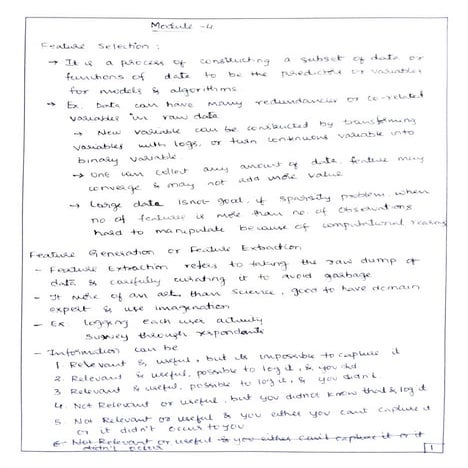 Module -4
Feature Selection :
→ It is a process of constructing a subset of data or
functions of data to be the predictors or variables
for models & algorithms
→ Ex. Data can have many redundancies or co-related
variables in raw data
→ New variable can be constructed by transforming
variables with logs, or turn continuous variable into
binary variable
→ One can collect any amount of data, feature may
converge & may not add more value
→ Large data is not good, if sparsity problem when
no of features is more than no. of observations
hard to manipulate because of computational reasons
Feature Generation or Feature Extraction
- Feature Extraction refers to taking the raw dump of
data & carefully curating it to avoid garbage
- It more of an art than science, good to have domain
expert & use imagination
- Ex logging each user activity
Survey through respondents
- Information can be
1 Relevant & useful, but its impossible to capture it
2. Relevant & useful, possible to log it, & you did
3 Relevant & useful, possible to log it, & you didn't
4. Not Relevant or useful, but you didnot know that & log it
5. Not Relevant or useful & you either you cant capture it
or it didn't occur to you
6 Not Relevant or useful & you either Cant capture it or it
didn't occur
1